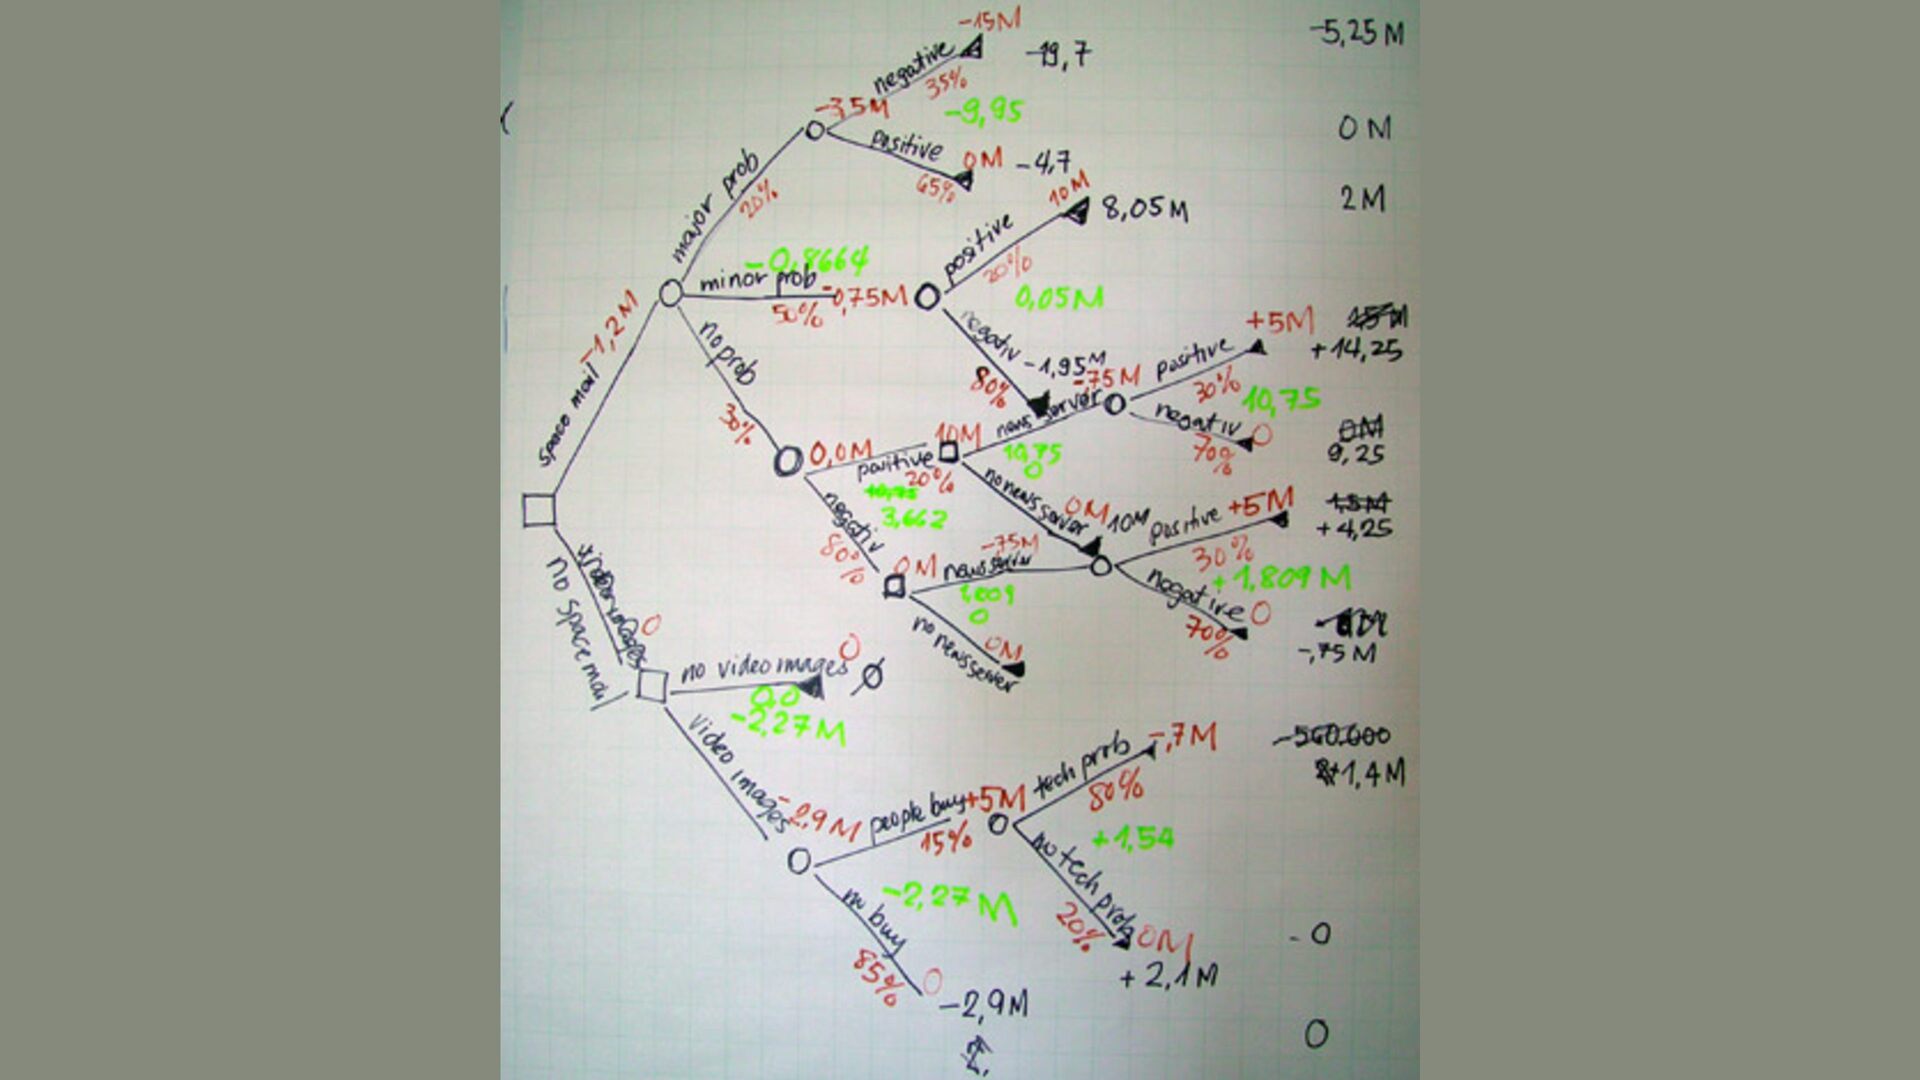 -15M
-5,25 M
negative
-19,7
35%
-3,5M
-9,95
0 M
positive
0M
-4,7
65%
major prob
20%
10M
2M
8,05M
positive
20%
-0,8664
minor prob
-0,75M
50%
0,05M
-1,2M
no prob
30%
negativ
-1,95M
80%
+5M
+14,25
-,75M
positive
30%
10,75
news server
negativ
0
70%
0M
9,25
space mail
0,0M
positive
20%
10M
10,75
0
3,662
no news server
0M
10M
positive
+5M
+4,25
30%
+1,809 M
negativ
80%
0M
-,75M
news server
1,809
0
negative
0
70%
-,75 M
no news server
0M
no space mail
0
no video images
0
0,0
-2,27M
video images
-2,9 M
people buy
+5M
15%
tech prob
-,7M
80%
-560.000
+1,4M
+1,54
no tech prob
20%
0M
+2,1M
-2,27 M
no buy
85%
0
-2,9M
- 0
0